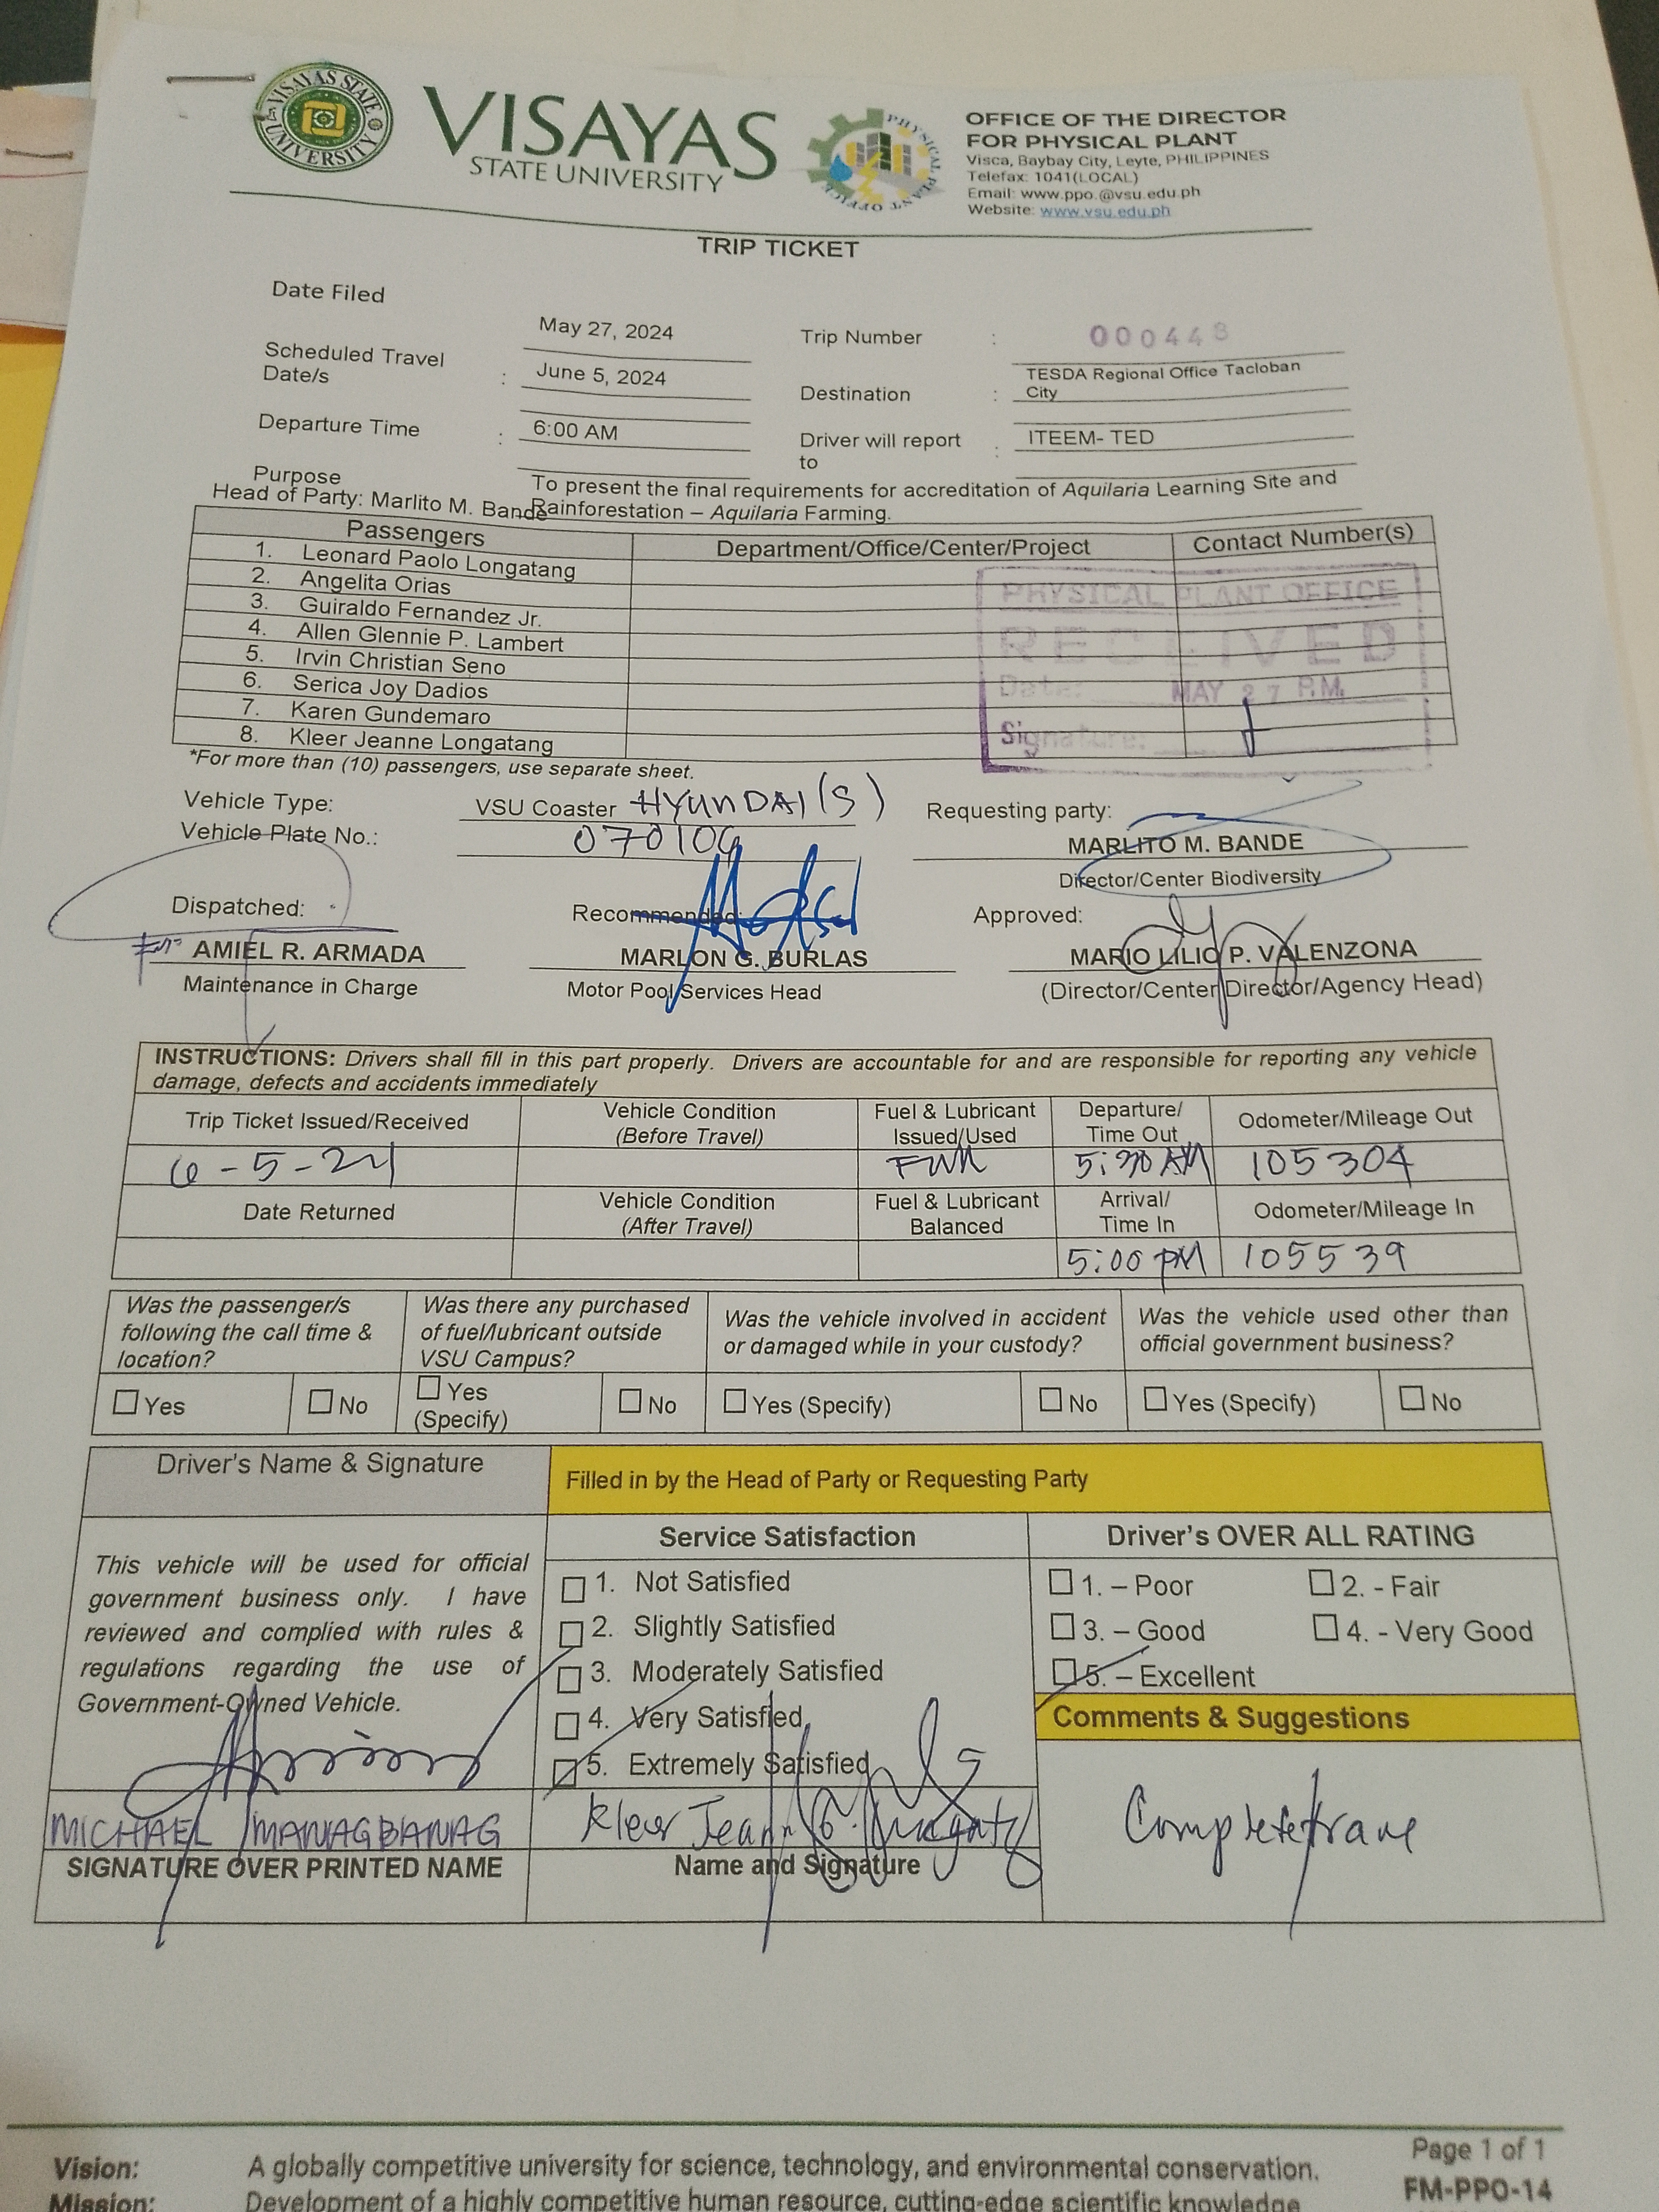 VISAYAS STATE UNIVERSITY
VISAYAS
STATE UNIVERSITY
PHYSICAL PLANT OFFICE
OFFICE OF THE DIRECTOR
FOR PHYSICAL PLANT
Visca, Baybay City, Leyte, PHILIPPINES
Telefax: 1041(LOCAL)
Email: www.ppo.@vsu.edu.ph
Website: www.vsu.edu.ph
TRIP TICKET
Date Filed May 27, 2024
Trip Number : 000448
Scheduled Travel Date/s : June 5, 2024
Destination : TESDA Regional Office Tacloban City
Departure Time : 6:00 AM
Driver will report to : ITEEM- TED
Purpose To present the final requirements for accreditation of Aquilaria Learning Site and
Rainforestation – Aquilaria Farming.
Head of Party: Marlito M. Bande
Passengers Department/Office/Center/Project Contact Number(s)
1. Leonard Paolo Longatang
2. Angelita Orias
3. Guiraldo Fernandez Jr.
4. Allen Glennie P. Lambert
5. Irvin Christian Seno
6. Serica Joy Dadios
7. Karen Gundemaro
8. Kleer Jeanne Longatang
PHYSICAL PLANT OFFICE
RECEIVED
Date: MAY 27 P.M.
Signature:
*For more than (10) passengers, use separate sheet.
Vehicle Type: VSU Coaster HYUNDAI (S)
Vehicle Plate No.:
Requesting party:
MARLITO M. BANDE
Director/Center Biodiversity
Dispatched: Recommended: Approved:
For AMIEL R. ARMADA MARLON G. BURLAS MARIO LILIO P. VALENZONA
Maintenance in Charge Motor Pool Services Head (Director/Center Director/Agency Head)
INSTRUCTIONS: Drivers shall fill in this part properly. Drivers are accountable for and are responsible for reporting any vehicle
damage, defects and accidents immediately
Trip Ticket Issued/Received Vehicle Condition (Before Travel) Fuel & Lubricant Issued/Used Departure/ Time Out Odometer/Mileage Out
6-5-24 Full 5:30 AM 105304
Date Returned Vehicle Condition (After Travel) Fuel & Lubricant Balanced Arrival/ Time In Odometer/Mileage In
5:00 PM 105539
Was the passenger/s following the call time & location?
Was there any purchased of fuel/lubricant outside VSU Campus?
Was the vehicle involved in accident or damaged while in your custody?
Was the vehicle used other than official government business?
Yes No Yes (Specify) No Yes (Specify) No Yes (Specify) No
Driver's Name & Signature
Filled in by the Head of Party or Requesting Party
This vehicle will be used for official
government business only. I have
reviewed and complied with rules &
regulations regarding the use of
Government-Owned Vehicle.
MICHAEL MANAGBANAG
SIGNATURE OVER PRINTED NAME
Service Satisfaction
1. Not Satisfied
2. Slightly Satisfied
3. Moderately Satisfied
4. Very Satisfied
5. Extremely Satisfied
Kleer Jeann G. Longatang
Name and Signature
Driver's OVER ALL RATING
1. – Poor 2. - Fair
3. – Good 4. - Very Good
5. – Excellent
Comments & Suggestions
Complete
Page 1 of 1
Vision: A globally competitive university for science, technology, and environmental conservation.
FM-PPO-14
Mission: Development of a highly competitive human resource, cutting-edge scientific knowledge